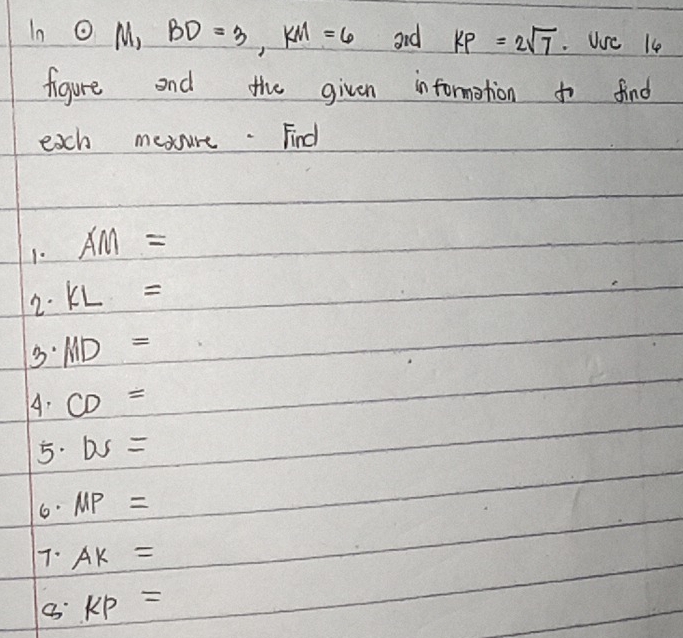 In ⊙ M, BD = 3, KM = 6 and KP = 2√7. Use
figure and the given information to find
each measure. Find
1. AM =
2. KL =
3. MD =
4. CD =
5. DS =
6. MP =
7. AK =
8. KP =